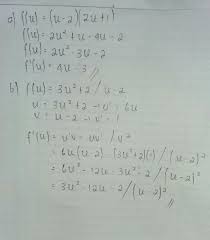 a) f(u) = (u-2)(2u+1)
f(u) = 2u² + u - 4u - 2
f(u) = 2u² - 3u - 2
f'(u) = 4u - 3 //
b) f(u) = 3u² + 2 / u - 2
u = 3u² + 2 → u' = 6u
v = u - 2 → v' = 1
f'(u) = u'v - uv' / v²
= 6u(u-2) - (3u²+2)(1) / (u-2)²
= 6u² - 12u - 3u² - 2 / (u-2)²
= 3u² - 12u - 2 / (u-2)² //